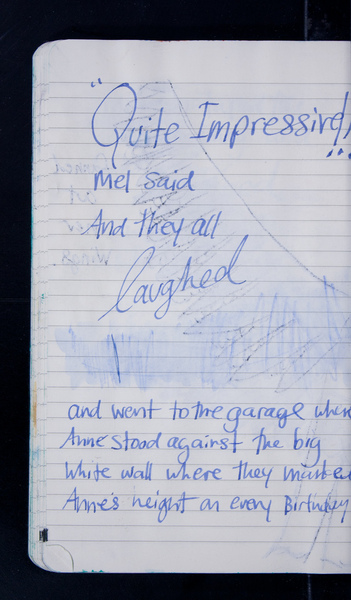 "Quite Impressive!"
Mel said
And they all
laughed
and went to the garage when
Anne stood against the big
White wall where they marked
Anne's height on every Birthday